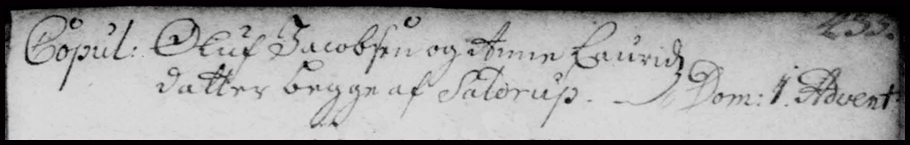 233.
Copul: Oluf Jacobsen og Anne Laurids
datter begge af Saldrup. Dom: 1. Advent